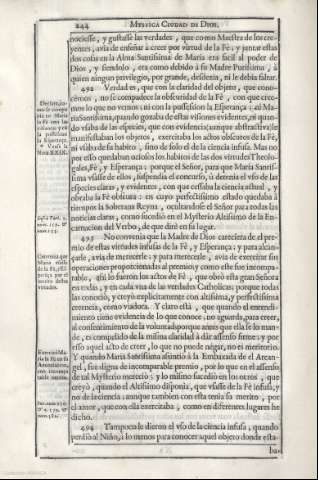 244 MYSTICA CIUDAD DE DIOS.
nociesse, y gustasse las verdades, que como Maestra de los creyentes,
avia de enseñar à creer por virtud de la Fè: y juntar estas
dos cosas en la Alma Santissima de Maria era facil al poder de
Dios, y siendolo, era como debido à su Madre Purissima, à
quien ningun privilegio, por grande, desdenia, ni le debia faltar.
492 Verdad es, que con la claridad del objeto, que conocemos,
no se compadece la obscuridad de la Fè, con que creemos
lo que no vemos; ni con la possession la Esperança: ni Maria
Santissima, quando gozaba de estas visiones evidentes, ni quando
vsaba de las especies, que con evidencia (aunque abstractiva) le
manifestaban los objetos, exercitaba los actos obscuros de la Fè,
ni vsaba de su habito, sino de solo el de la ciencia infusa. Mas no
por esso quedaban ociosos los habitos de las dos virtudes Theologales,
Fè, y Esperança: porque el Señor, para que Maria Santissima
vsasse de ellos, suspendia el concurso, ù detenia el vso de las
especies claras, y evidentes, con que cessaba la ciencia actual, y
obraba la Fè obscura: en cuyo perfectissimo estado quedaba à
tiempos la Soberana Reyna, ocultandose el Señor para todas las
noticias claras, como sucediò en el Mysterio Altissimo de la Encarnacion
del Verbo, de que dirè en su lugar.
493 No convenia que la Madre de Dios careciera de el premio
de estas virtudes infusas de la Fè, y Esperança; y para alcançarle,
avia de merecerle: y para merecerle, avia de exercitar sus
operaciones proporcionadas al premio; y como este fue incomparable,
assi lo fueron los actos de Fè, que obrò esta gran Señora
en todas, y en cada vna de las verdades Catholicas; porque todas
las conociò, y creyò explicitamente con altissima, y perfectissima
creencia, como viadora. Y claro està, que quando el entendimiento
tiene evidencia de lo que conoce, no aguarda, para creer,
al consentimiento de la voluntad; porque antes que ella se lo mande,
es compelido de la misma claridad à dàr assenso firme: y por
esso aquel acto de creer, lo que no puede negar, no es meritorio.
Y quando Maria Santissima assintiò à la Embaxada de el Arcangel,
fue digna de incomparable premio, por lo que en el assenso
de tal Mysterio mereciò; y lo mismo sucediò en los otros, que
creyò, quando el Altissimo disponia, que vsasse de la Fè infusa, y
no de la ciencia: aunque tambien con esta tenia su merito, por
el amor, que con ella exercitaba, como en diferentes lugares he
dicho.
494 Tampoco le dieron el vso de la ciencia infusa, quando
perdiò al Niño, à lo menos para conocer aquel objeto donde esta-
ba,